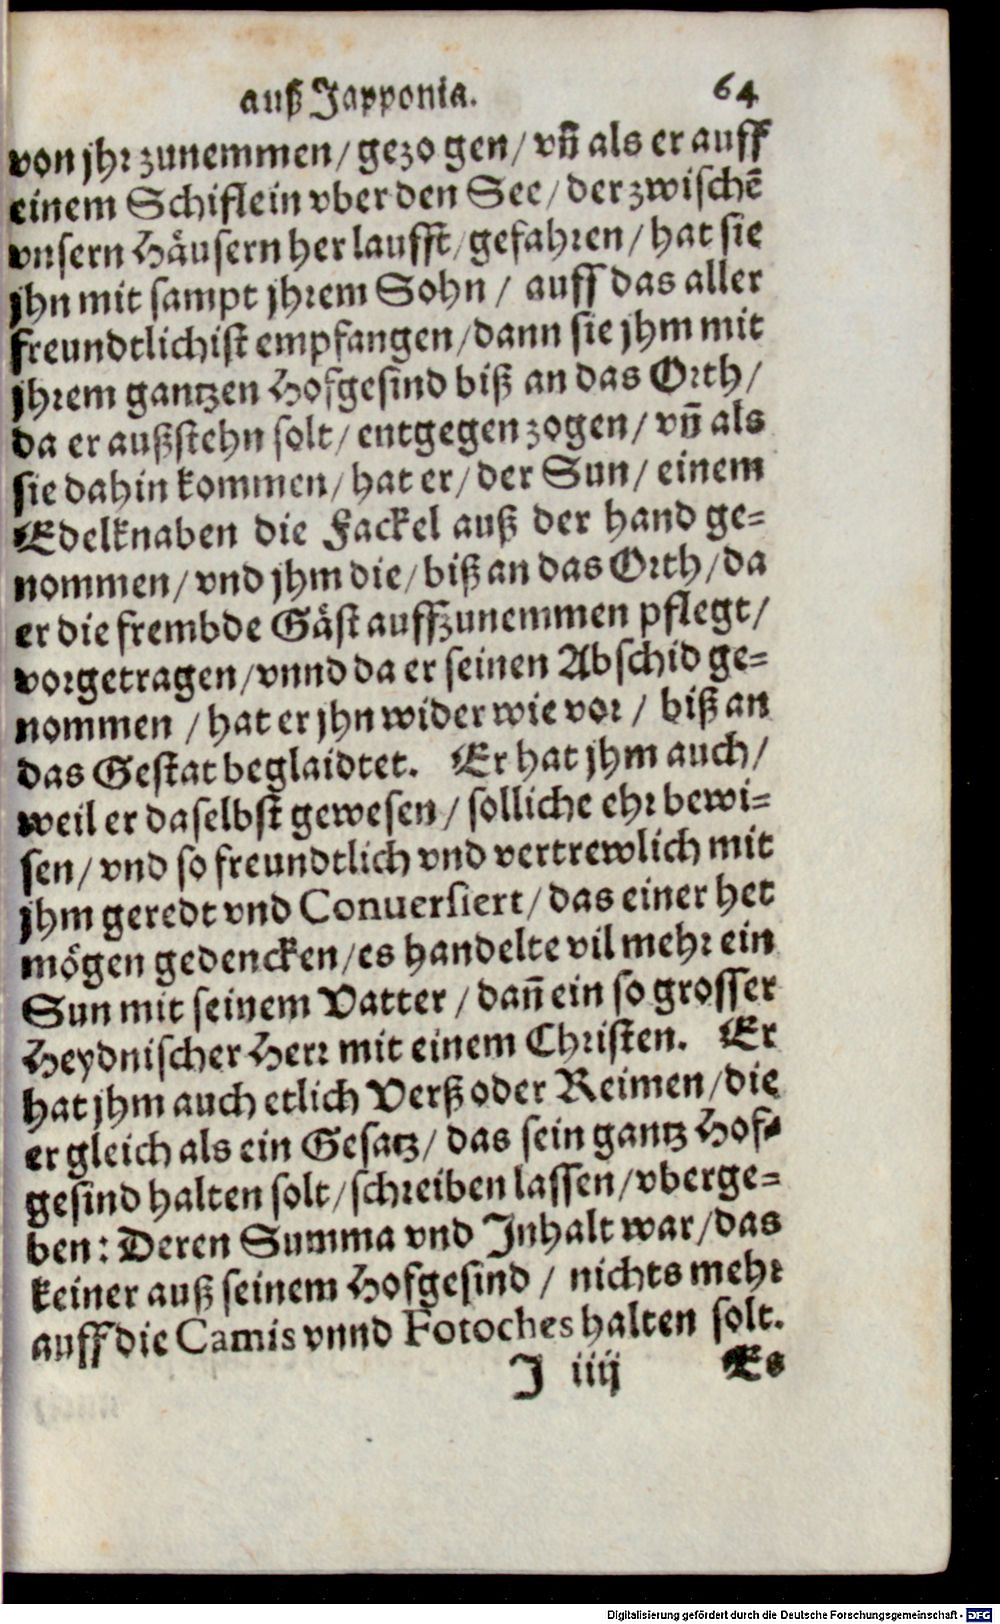 auß Japponia. 64
von jhr zunemmen/ gezo gen/ vñ als er auff
einem Schiflein vber den See/ der zwischẽ
vnsern Häusern her laufft/ gefahren/ hat sie
jhn mit sampt jhrem Sohn / auff das aller
freundtlichist empfangen/ dann sie jhm mit
jhrem gantzen Hofgesind biß an das Orth/
da er außstehn solt/ entgegen zogen/ vñ als
sie dahin kommen/ hat er/ der Sun/ einem
Edelknaben die Fackel auß der hand ge=
nommen/ vnd jhm die/ biß an das Orth/ da
er die frembde Gäst auffzunemmen pflegt/
vorgetragen/ vnnd da er seinen Abschid ge=
nommen / hat er jhn wider wie vor / biß an
das Gestat beglaidtet. Er hat jhm auch/
weil er daselbst gewesen/ solliche ehr bewi=
sen/ vnd so freundtlich vnd vertrewlich mit
jhm geredt vnd Conuersiert/ das einer het
mögen gedencken/ es handelte vil mehr ein
Sun mit seinem Vatter / dañ ein so grosser
Heydnischer Herr mit einem Christen. Er
hat jhm auch etlich Verß oder Reimen/ die
er gleich als ein Gesatz/ das sein gantz Hof=
gesind halten solt/ schreiben lassen/ vberge=
ben: Deren Summa vnd Inhalt war/ das
keiner auß seinem Hofgesind / nichts mehr
auff die Camis vnnd Fotoches halten solt.
J iiij Es
Digitalisierung gefördert durch die Deutsche Forschungsgemeinschaft - DFG